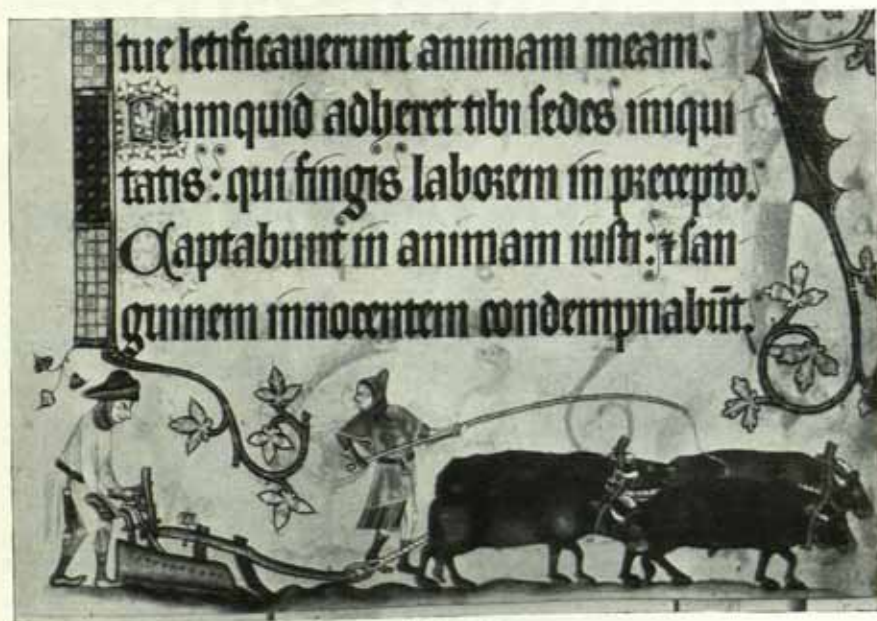 tue letificauerunt animam meam.
Numquid adheret tibi sedes iniqui
tatis: qui fingis laborem in precepto.
Captabunt in animam iusti: ⁊ san
guinem innocentem condempnabūt.